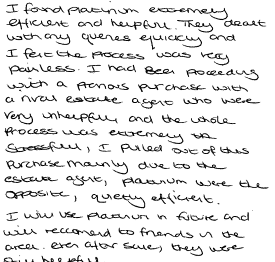 I found platinum extremely
efficient and helpful. They dealt
with any queries quickly and
I felt the process was very
painless. I had been proceeding
with a previous purchase with
a rival estate agent who were
very unhelpful and the whole
process was extremely the
stressful, I pulled out of this
purchase mainly due to the
estate agent, platinum were the
opposite, quietly efficient.
I will use platinum in future and
will reccomend to friends in the
area. Even after sale, they were
still helpful